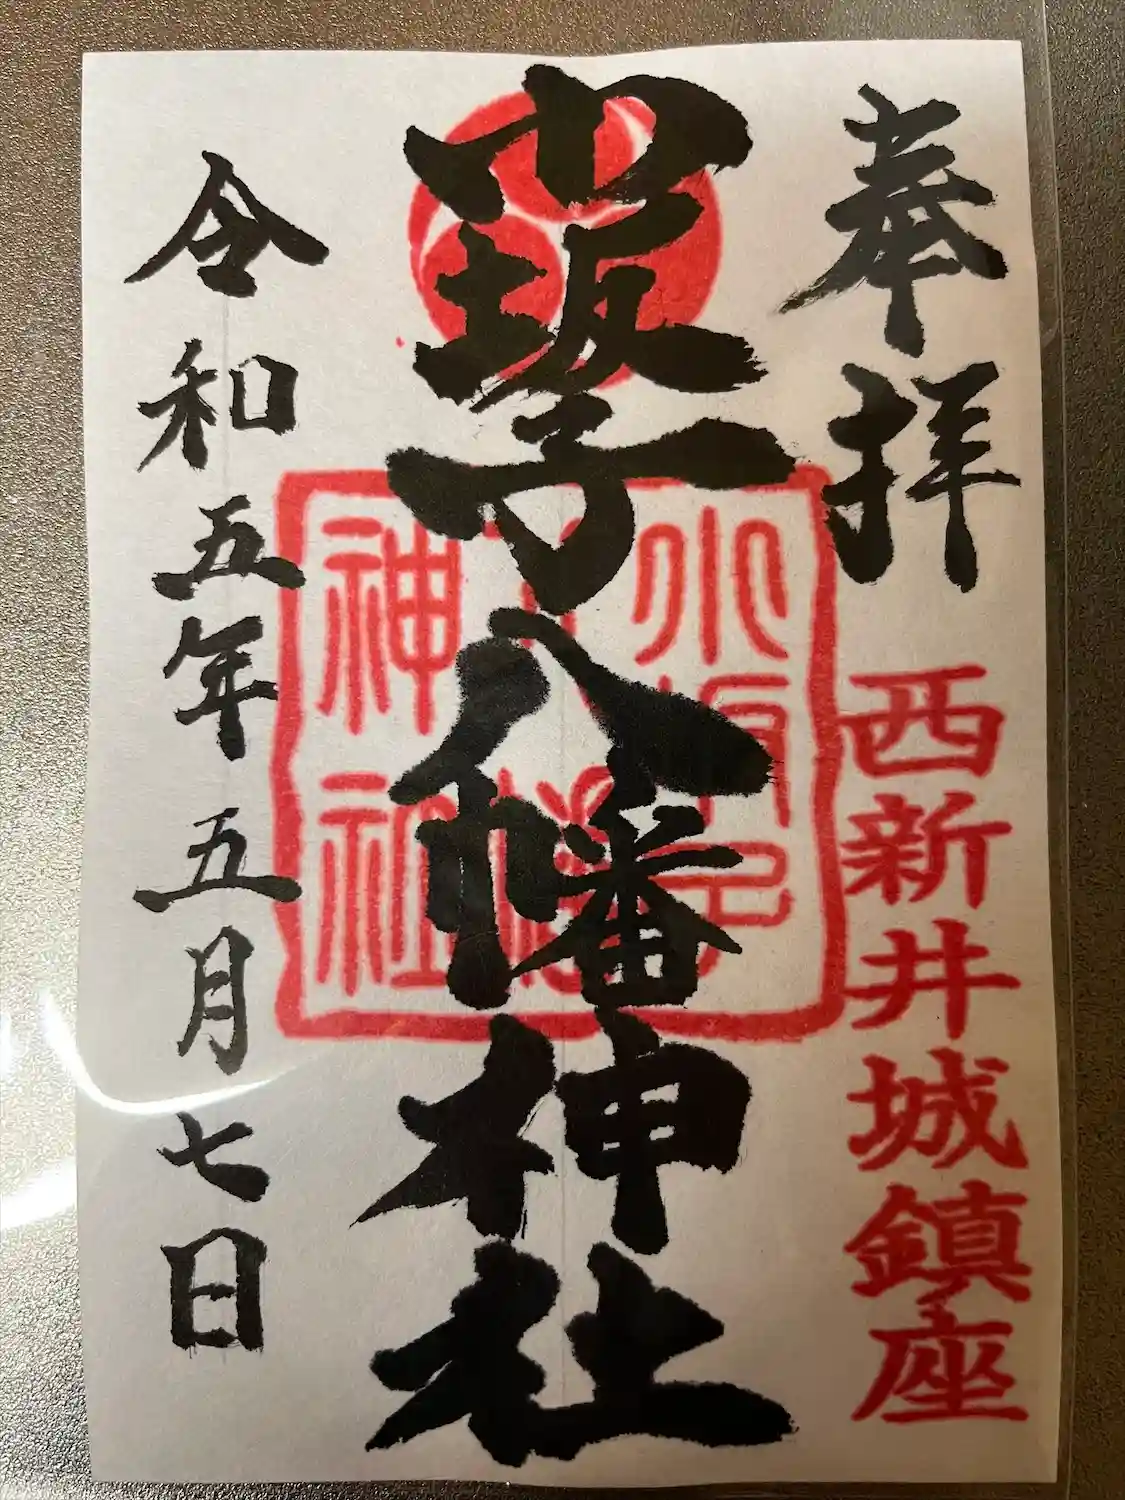 奉拝
西新井城鎮座
小坂子八幡神社
小坂子
八幡
神社
令和五年五月七日